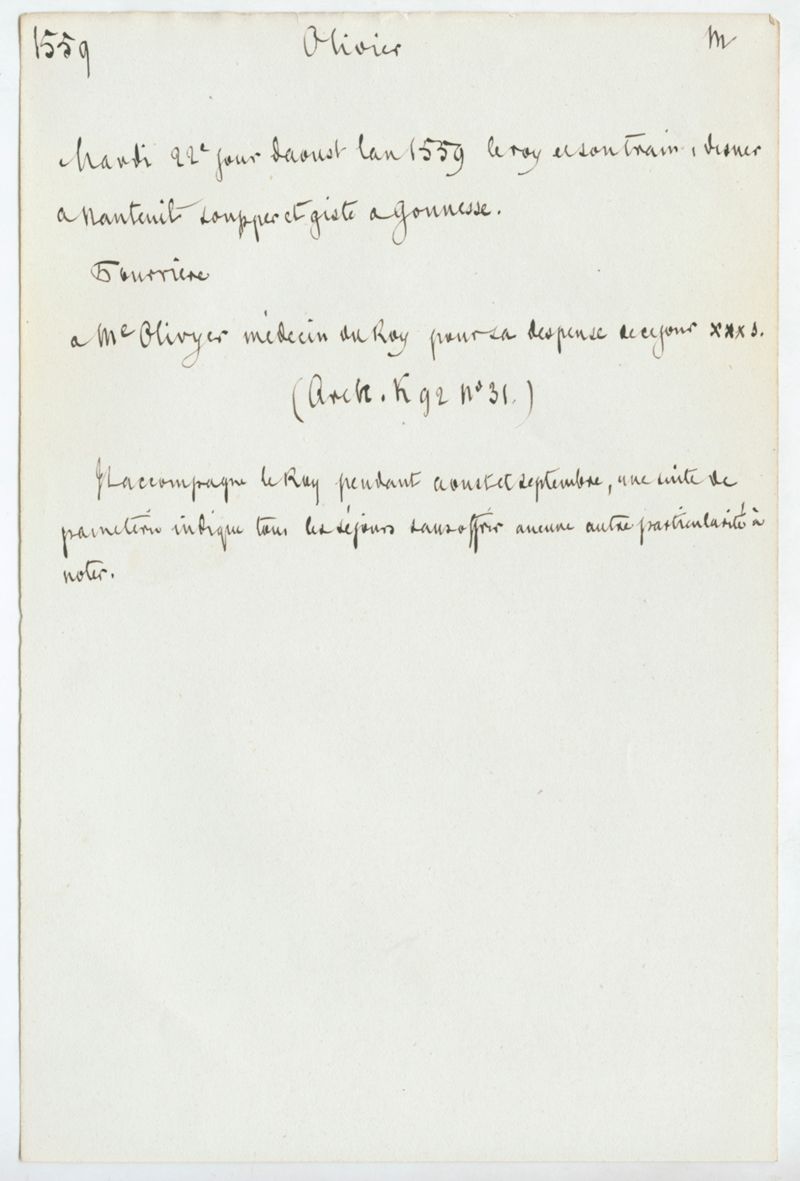 1559 Olivier M
Mardi 22e jour daoust lan 1559 le roy et son train, disner
a Nanteuil soupper et giste a Gonnesse.
Fourrière
a Me Olivyer médecin du Roy pour sa despense de ce jour xxx s.
(Arch. K 92 No 31.)
Il accompagne le Roy pendant aoust et septembre, une suite de
tous les séjours sans offrir aucune autre particularité à
noter.